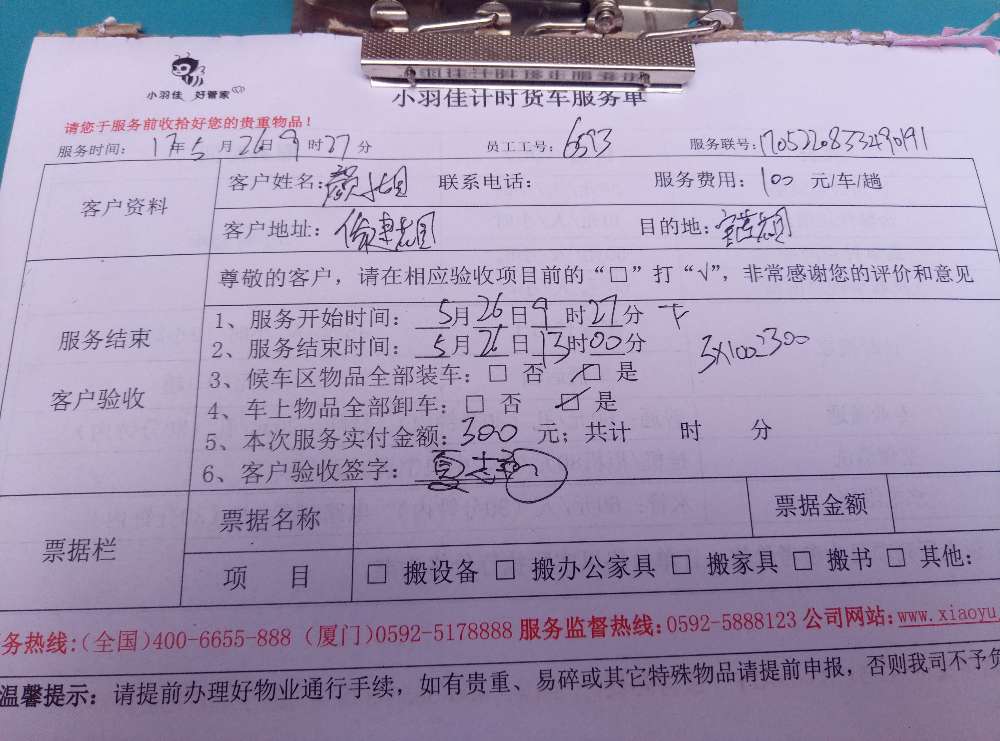 小羽佳 好管家
小羽佳计时货车服务单
请您于服务前收拾好您的贵重物品！
服务时间： 17年5月26日9时27分 员工工号：6593 服务联号：170522083349091
客户资料
客户姓名： 联系电话： 服务费用：100 元/车/趟
客户地址： 目的地：
尊敬的客户，请在相应验收项目前的“□”打“√”，非常感谢您的评价和意见
服务结束
客户验收
1、服务开始时间：5月26日9时27分
2、服务结束时间：5月26日13时00分
3×100=300
3、候车区物品全部装车：□ 否 ☑ 是
4、车上物品全部卸车：□ 否 ☑ 是
5、本次服务实付金额：300 元；共计 时 分
6、客户验收签字：
票据栏
票据名称 票据金额
项 目 □ 搬设备 □ 搬办公家具 □ 搬家具 □ 搬书 □ 其他：
务热线：(全国)400-6655-888 (厦门)0592-5178888 服务监督热线：0592-5888123 公司网站：www.xiaoyu
温馨提示：请提前办理好物业通行手续，如有贵重、易碎或其它特殊物品请提前申报，否则我司不予负